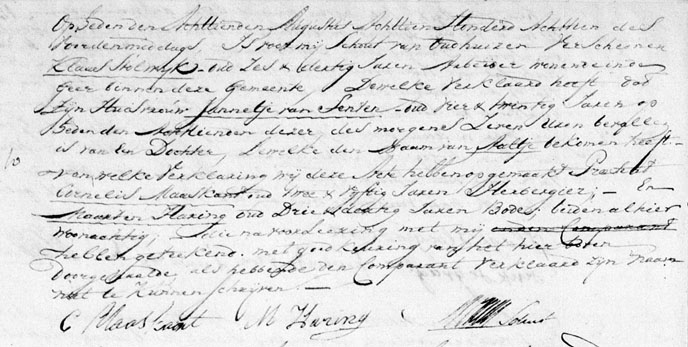 Op Heden den Achttienden Augustus Achttien Honderd Achttien des
Voordenmiddags, Is voor mij Schout van Oudhuizen Verscheenen
Klaas Stolwijk oud Zes & dertig Jaren Arbeider wonende
hier binnen deze Gemeente, Dewelke Verklaard heeft dat
Zyn Huisvrouw Jannetje van oud vier & twintig Jaren op
Heden den Achttienden dezer des morgens Zeven Uren bevallen
is van een Dochter, Dewelke den Naam van Aaltje bekomen heeft
van welke Verklaring wij deze Acte hebben opgemaakt Present
Cornelis Maaskant oud Twee & vyftig Jaren Herbergier; En
Maarten Haring oud Drie & dertig Jaren Bode; beiden alhier
woonachtig, die na voorlezing met mij
hebben getekend. met goedkeuring van het hier boven
doorgehaalde, als hebbende den Comparant Verklaard zyn naam
niet te kunnen schrijven.
C Maaskant M Haring Schout